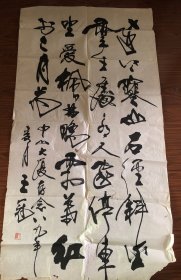 遠上寒山石徑斜白
雲生處有人家停車
坐愛楓林晚霜葉紅
於二月花 中山大廈 八九年
春月 王